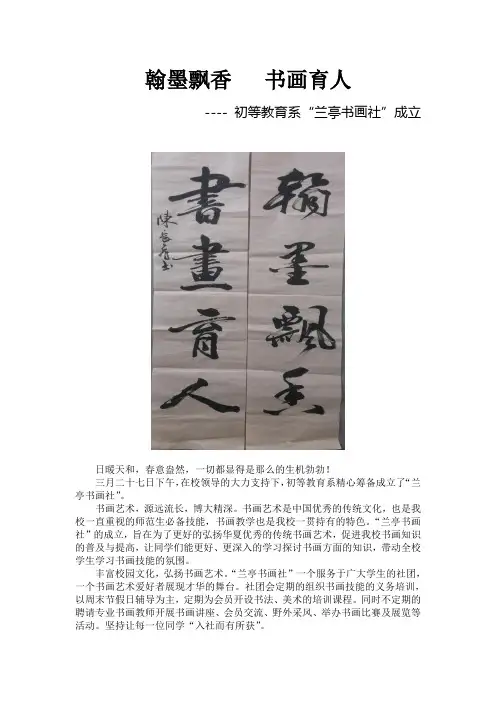 翰墨飘香 书画育人
---- 初等教育系“兰亭书画社”成立
翰墨飄香
書畫育人
日暖天和，春意盎然，一切都显得是那么的生机勃勃！
三月二十七日下午，在校领导的大力支持下，初等教育系精心筹备成立了“兰
亭书画社”。
书画艺术，源远流长，博大精深。书画艺术是中国优秀的传统文化，也是我
校一直重视的师范生必备技能，书画教学也是我校一贯持有的特色。“兰亭书画
社”的成立，旨在为了更好的弘扬华夏优秀的传统书画艺术，促进我校书画知识
的普及与提高，让同学们能更好、更深入的学习探讨书画方面的知识，带动全校
学生学习书画技能的氛围。
丰富校园文化，弘扬书画艺术。“兰亭书画社”一个服务于广大学生的社团，
一个书画艺术爱好者展现才华的舞台。社团会定期的组织书画技能的义务培训，
以周末节假日辅导为主，定期为会员开设书法、美术的培训课程。同时不定期的
聘请专业书画教师开展书画讲座、会员交流、野外采风、举办书画比赛及展览等
活动。坚持让每一位同学“入社而有所获”。